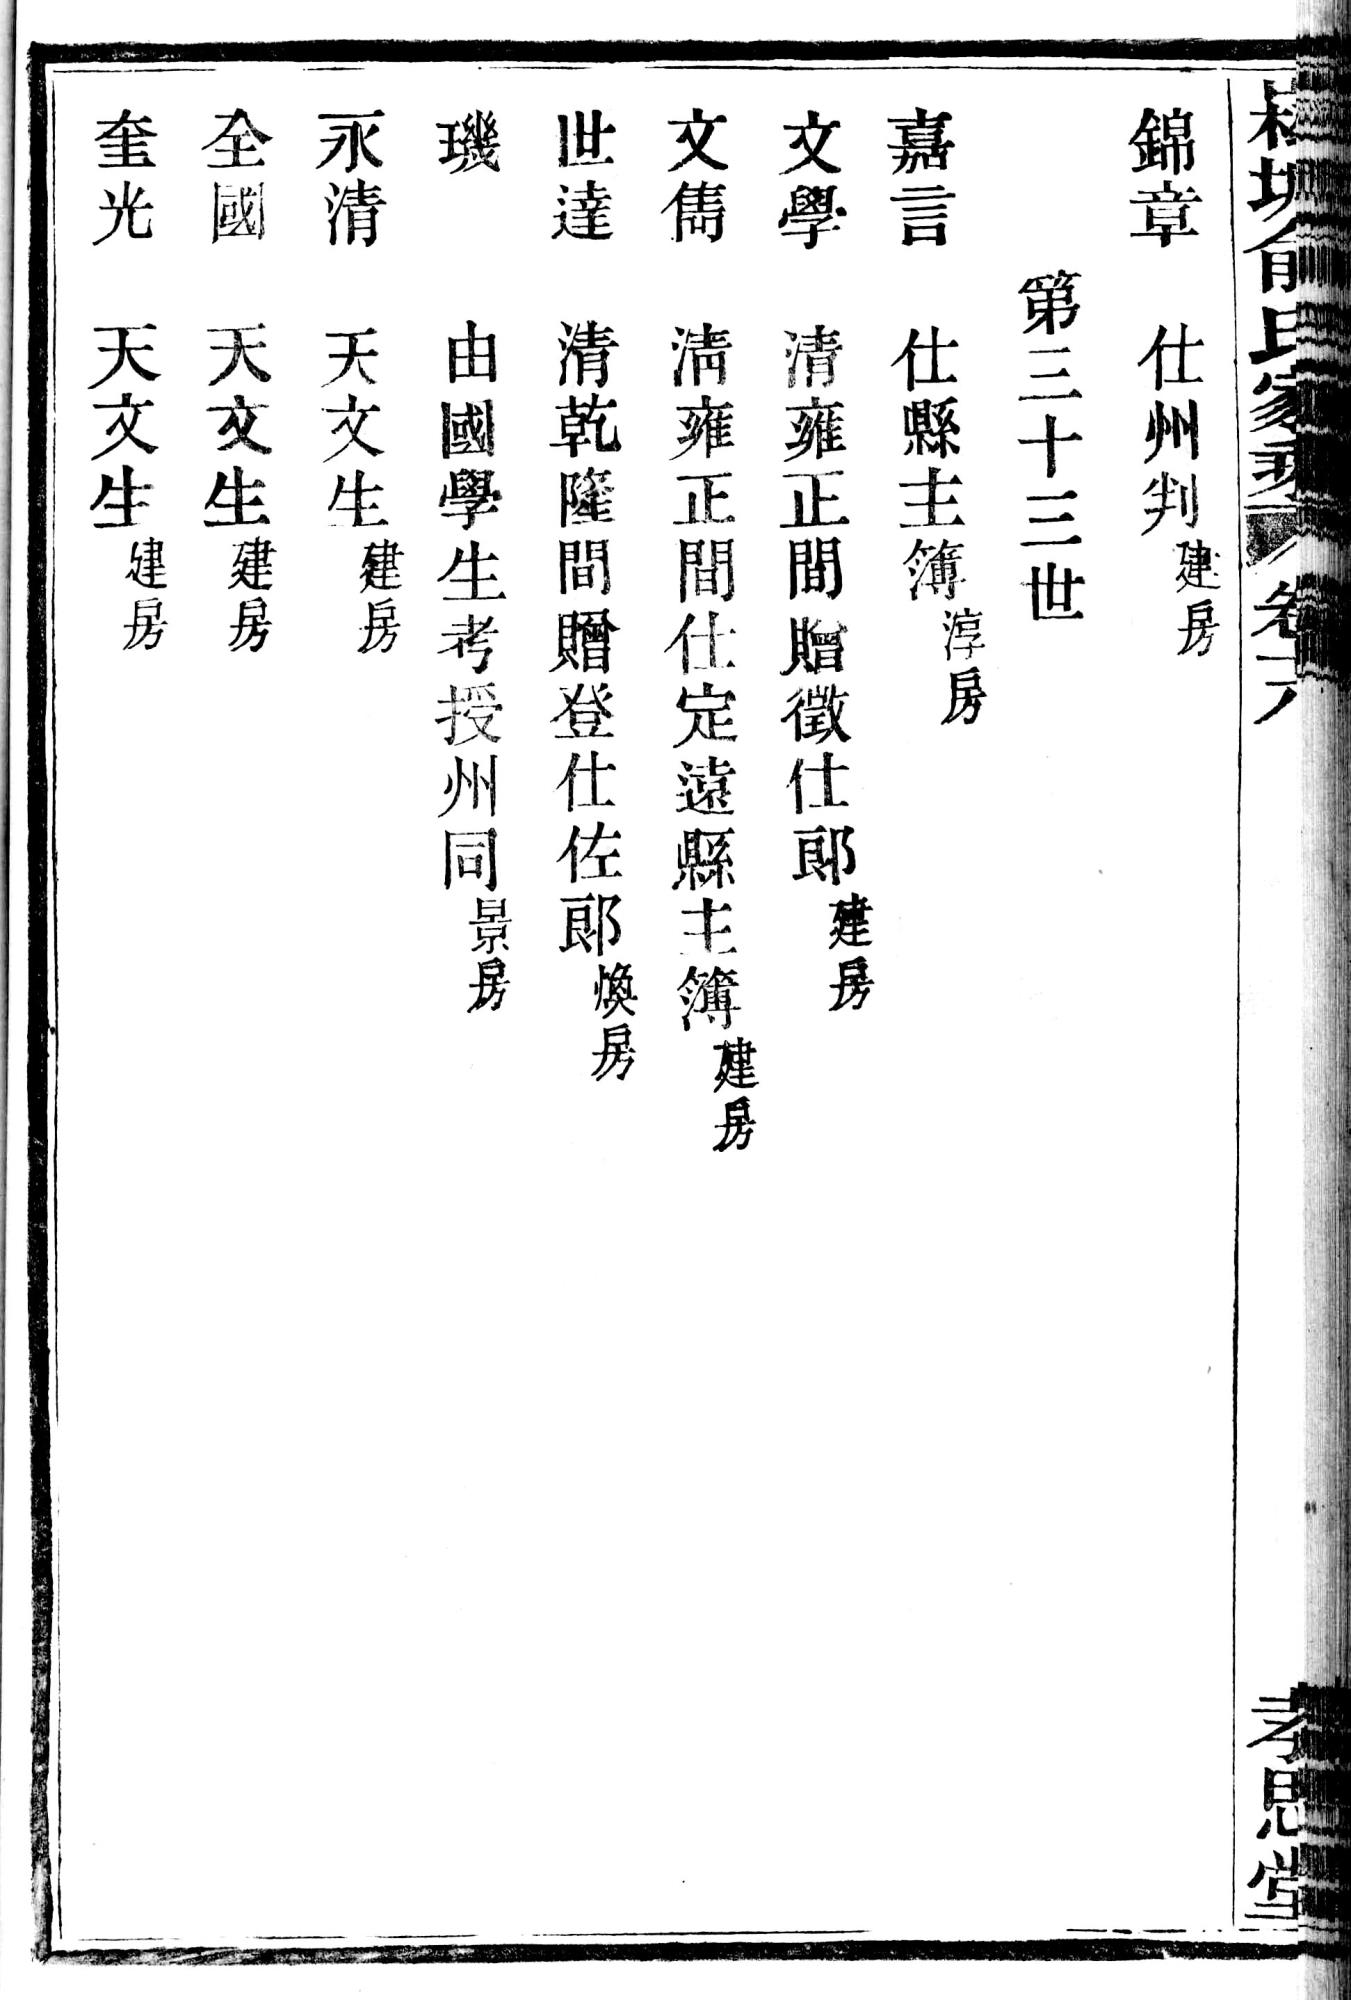 俞氏家乘 卷六 孝思堂
錦章 仕州判建房
第三十三世
嘉言 仕縣主簿淳房
文學 清雍正間贈徵仕郎建房
文雋 清雍正間仕定遠縣主簿建房
世達 清乾隆間贈登仕佐郎煥房
璣 由國學生考授州同景房
永清 天文生建房
全國 天文生建房
奎光 天文生建房